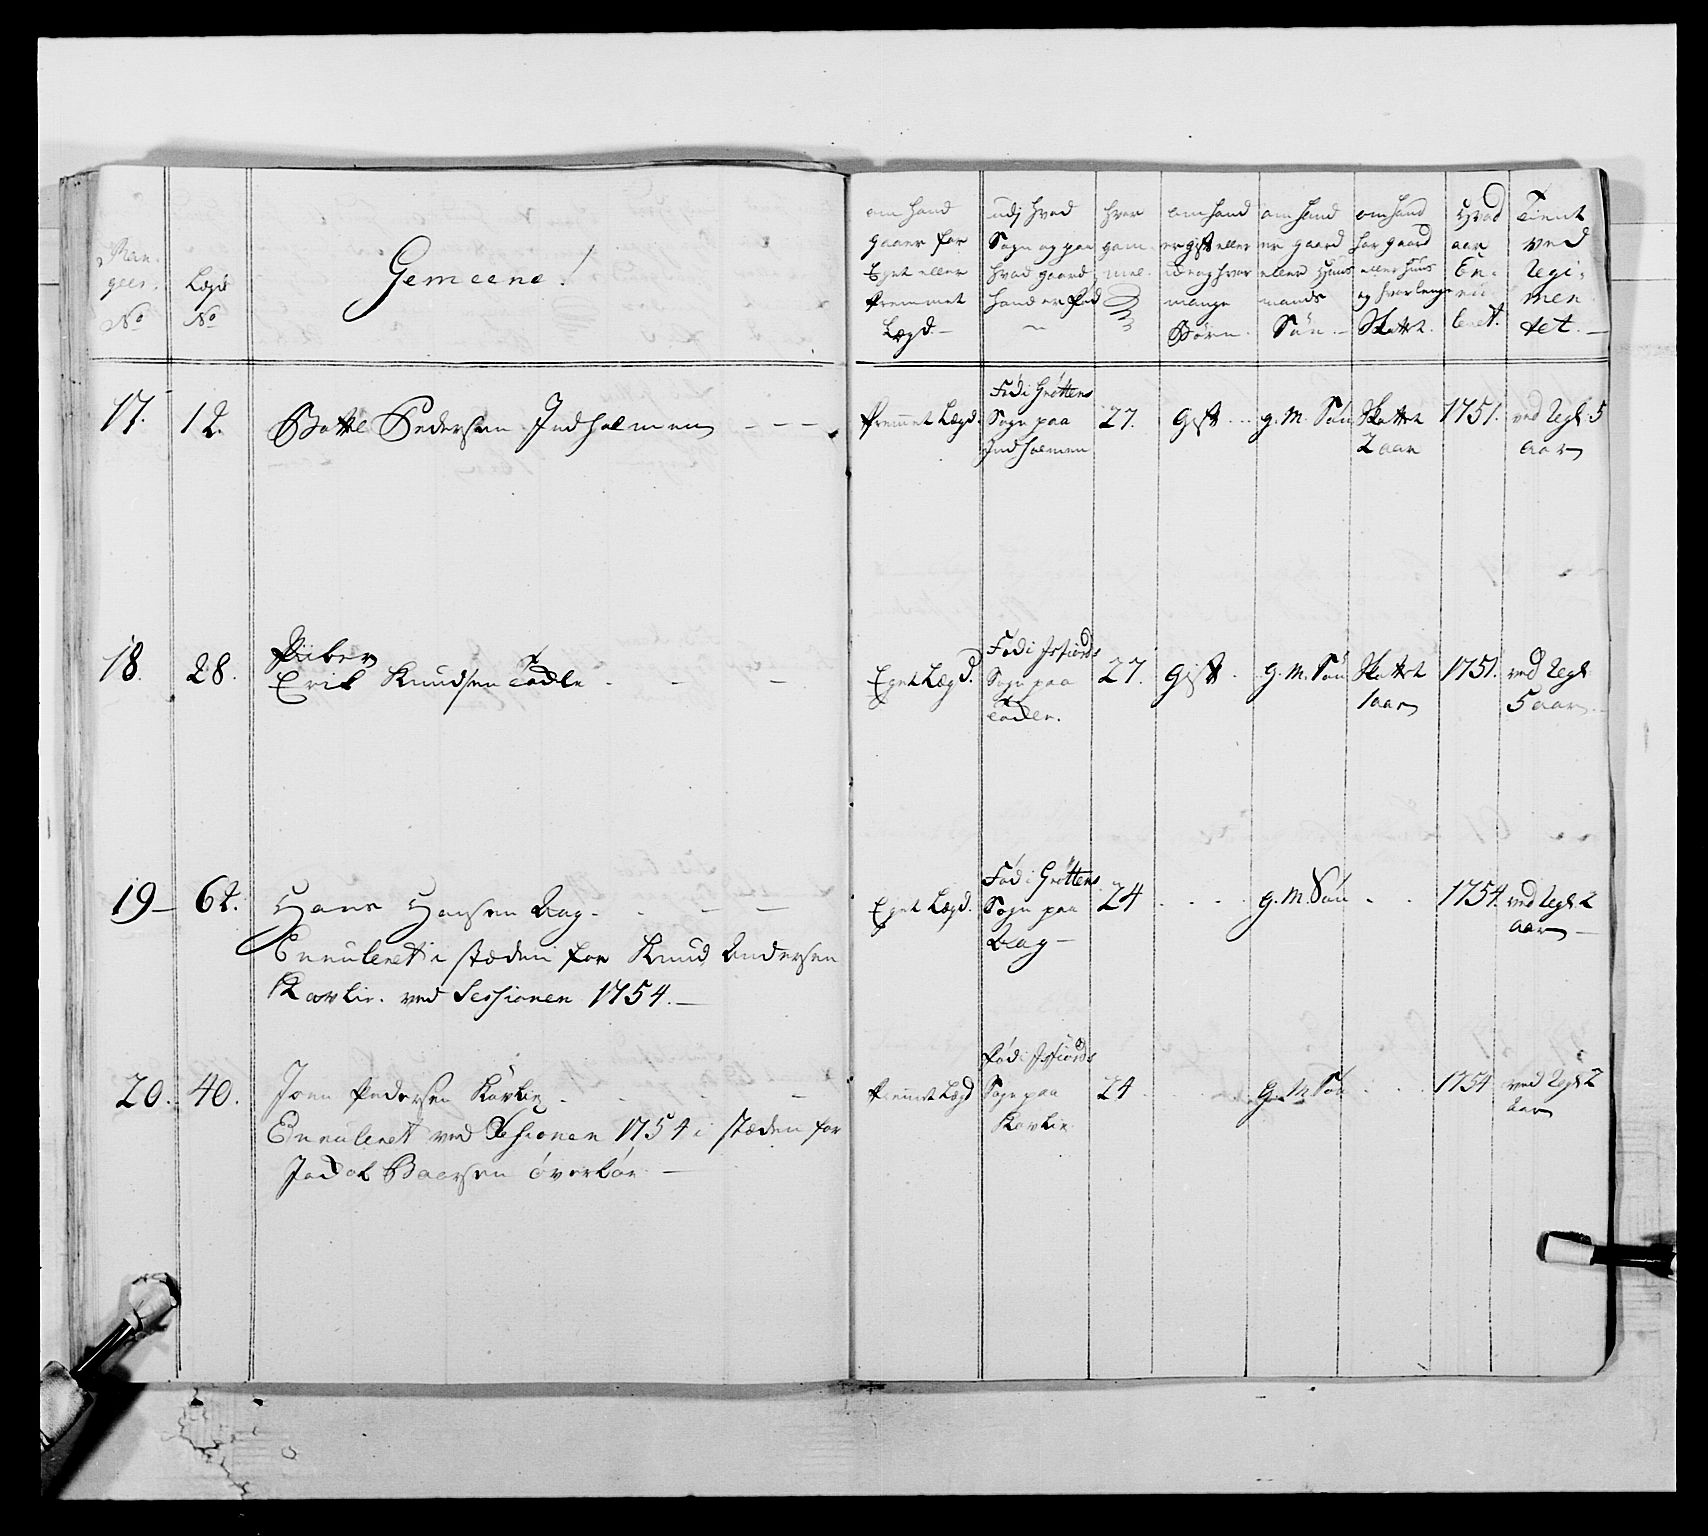 Ran-
gees.
No
Lægs
No
Gemeene!
om hand
gaaer for
Eget eller
fremmet
Lægd.-
udj hvad
Sogn og paa
hvad gaard
hand er fød
hvor
gam-
mel.
om hand
er gift eller
ude og hvor
mange
Børn.
om hand
er gaard
eller Huus
mands
Søn.
om hand
har gaard
eller huus
og hvor lenge
Skattet.
Hvad
aar
En-
rul-
leret.
Tient
ved
Regi-
men
tet.
17. 12. Bottel Pedersen Indholmen - - -
fremmet Lægd.
Fød i Grøttens
Sogn paa
Indholmen
27.
Gift
g. M. Søn
Skattet
2 aar
1751.
ved Regt 5
aar
18. 28.
Piiber
Erik Knudsen Tødle - - -
Eget Lægd.
Fød i Isfiords
Sogn paa
Tødle.
27.
Gift
g. M. Søn
Skattet
1 aar
1751.
ved Regt
5 aar
19- 62. Hans Hansen Aag - - -
Enruleret i stæden for Knud Andersen
Kavlie. ved Sessionen 1754.-
Eget Lægd.
Fød i Grøttens
Sogn paa
Aag-
24
g. M. Søn
1754.
ved Regt 2
aar
20. 40. Joen Pedersen Kavlie
Enruleret ved Sessionen 1754 i stæden for
Jacob Baarsen øverbøe -
fremmet Lægd
fød i Isfiords
Sogn paa
Kavlie
24
g. M. Søn
1754
ved Regt 2
aar